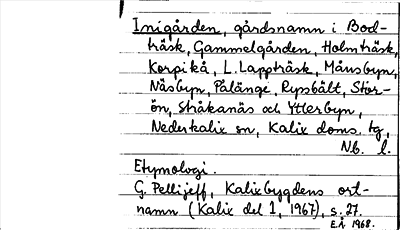 Inigården, gårdsnamn i Bod-
träsk, Gammelgården, Holmträsk,
Korpikå, L. Lappträsk, Månsbyn,
Näsbyn, Pålänge, Rypsbält, Stor-
ön, Stråkanäs och Ytterbyn,
Nederkalix sn, Kalix doms. tg,
Nb. l.
Etymologi.
G. Pellijeff, Kalixbygdens ort-
namn (Kalix del 1, 1967), s. 27.
E.Å 1968.